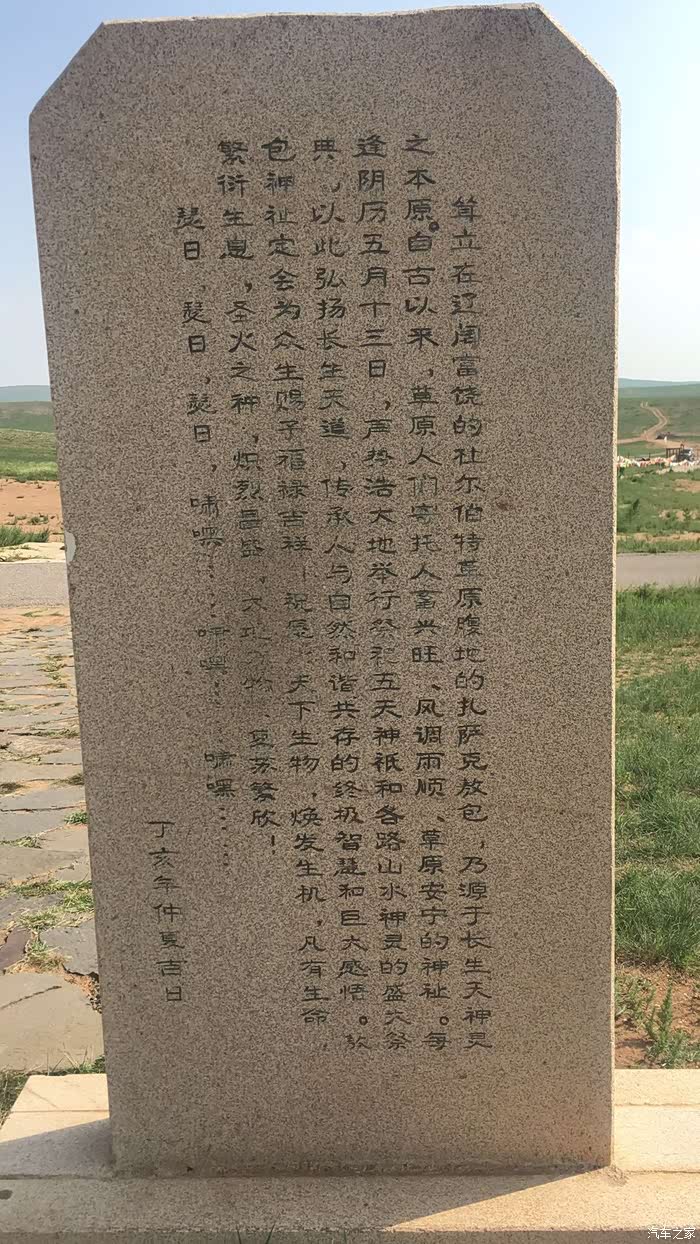 耸立在辽阔富饶的杜尔伯特草原腹地的扎萨克敖包，乃源于长生天神灵
之本原。自古以来，草原人们寄托人畜兴旺、风调雨顺、草原安宁的神祉。每
逢阴历五月十三日，声势浩大地举行祭祀五天神祇和各路山水神灵的盛大祭
典，以此弘扬长生天道，传承人与自然和谐共存的终极智慧和巨大感悟。敖
包神祉定会为众生赐予福禄吉祥！祝愿：天下生物，焕发生机，凡有生命，
繁衍生息，圣火之神，炽烈昌盛，大地万物、复苏繁欣！
瑟日，瑟日，瑟日，啸嘿……啸嘿……啸嘿……
丁亥年仲夏吉日
汽车之家